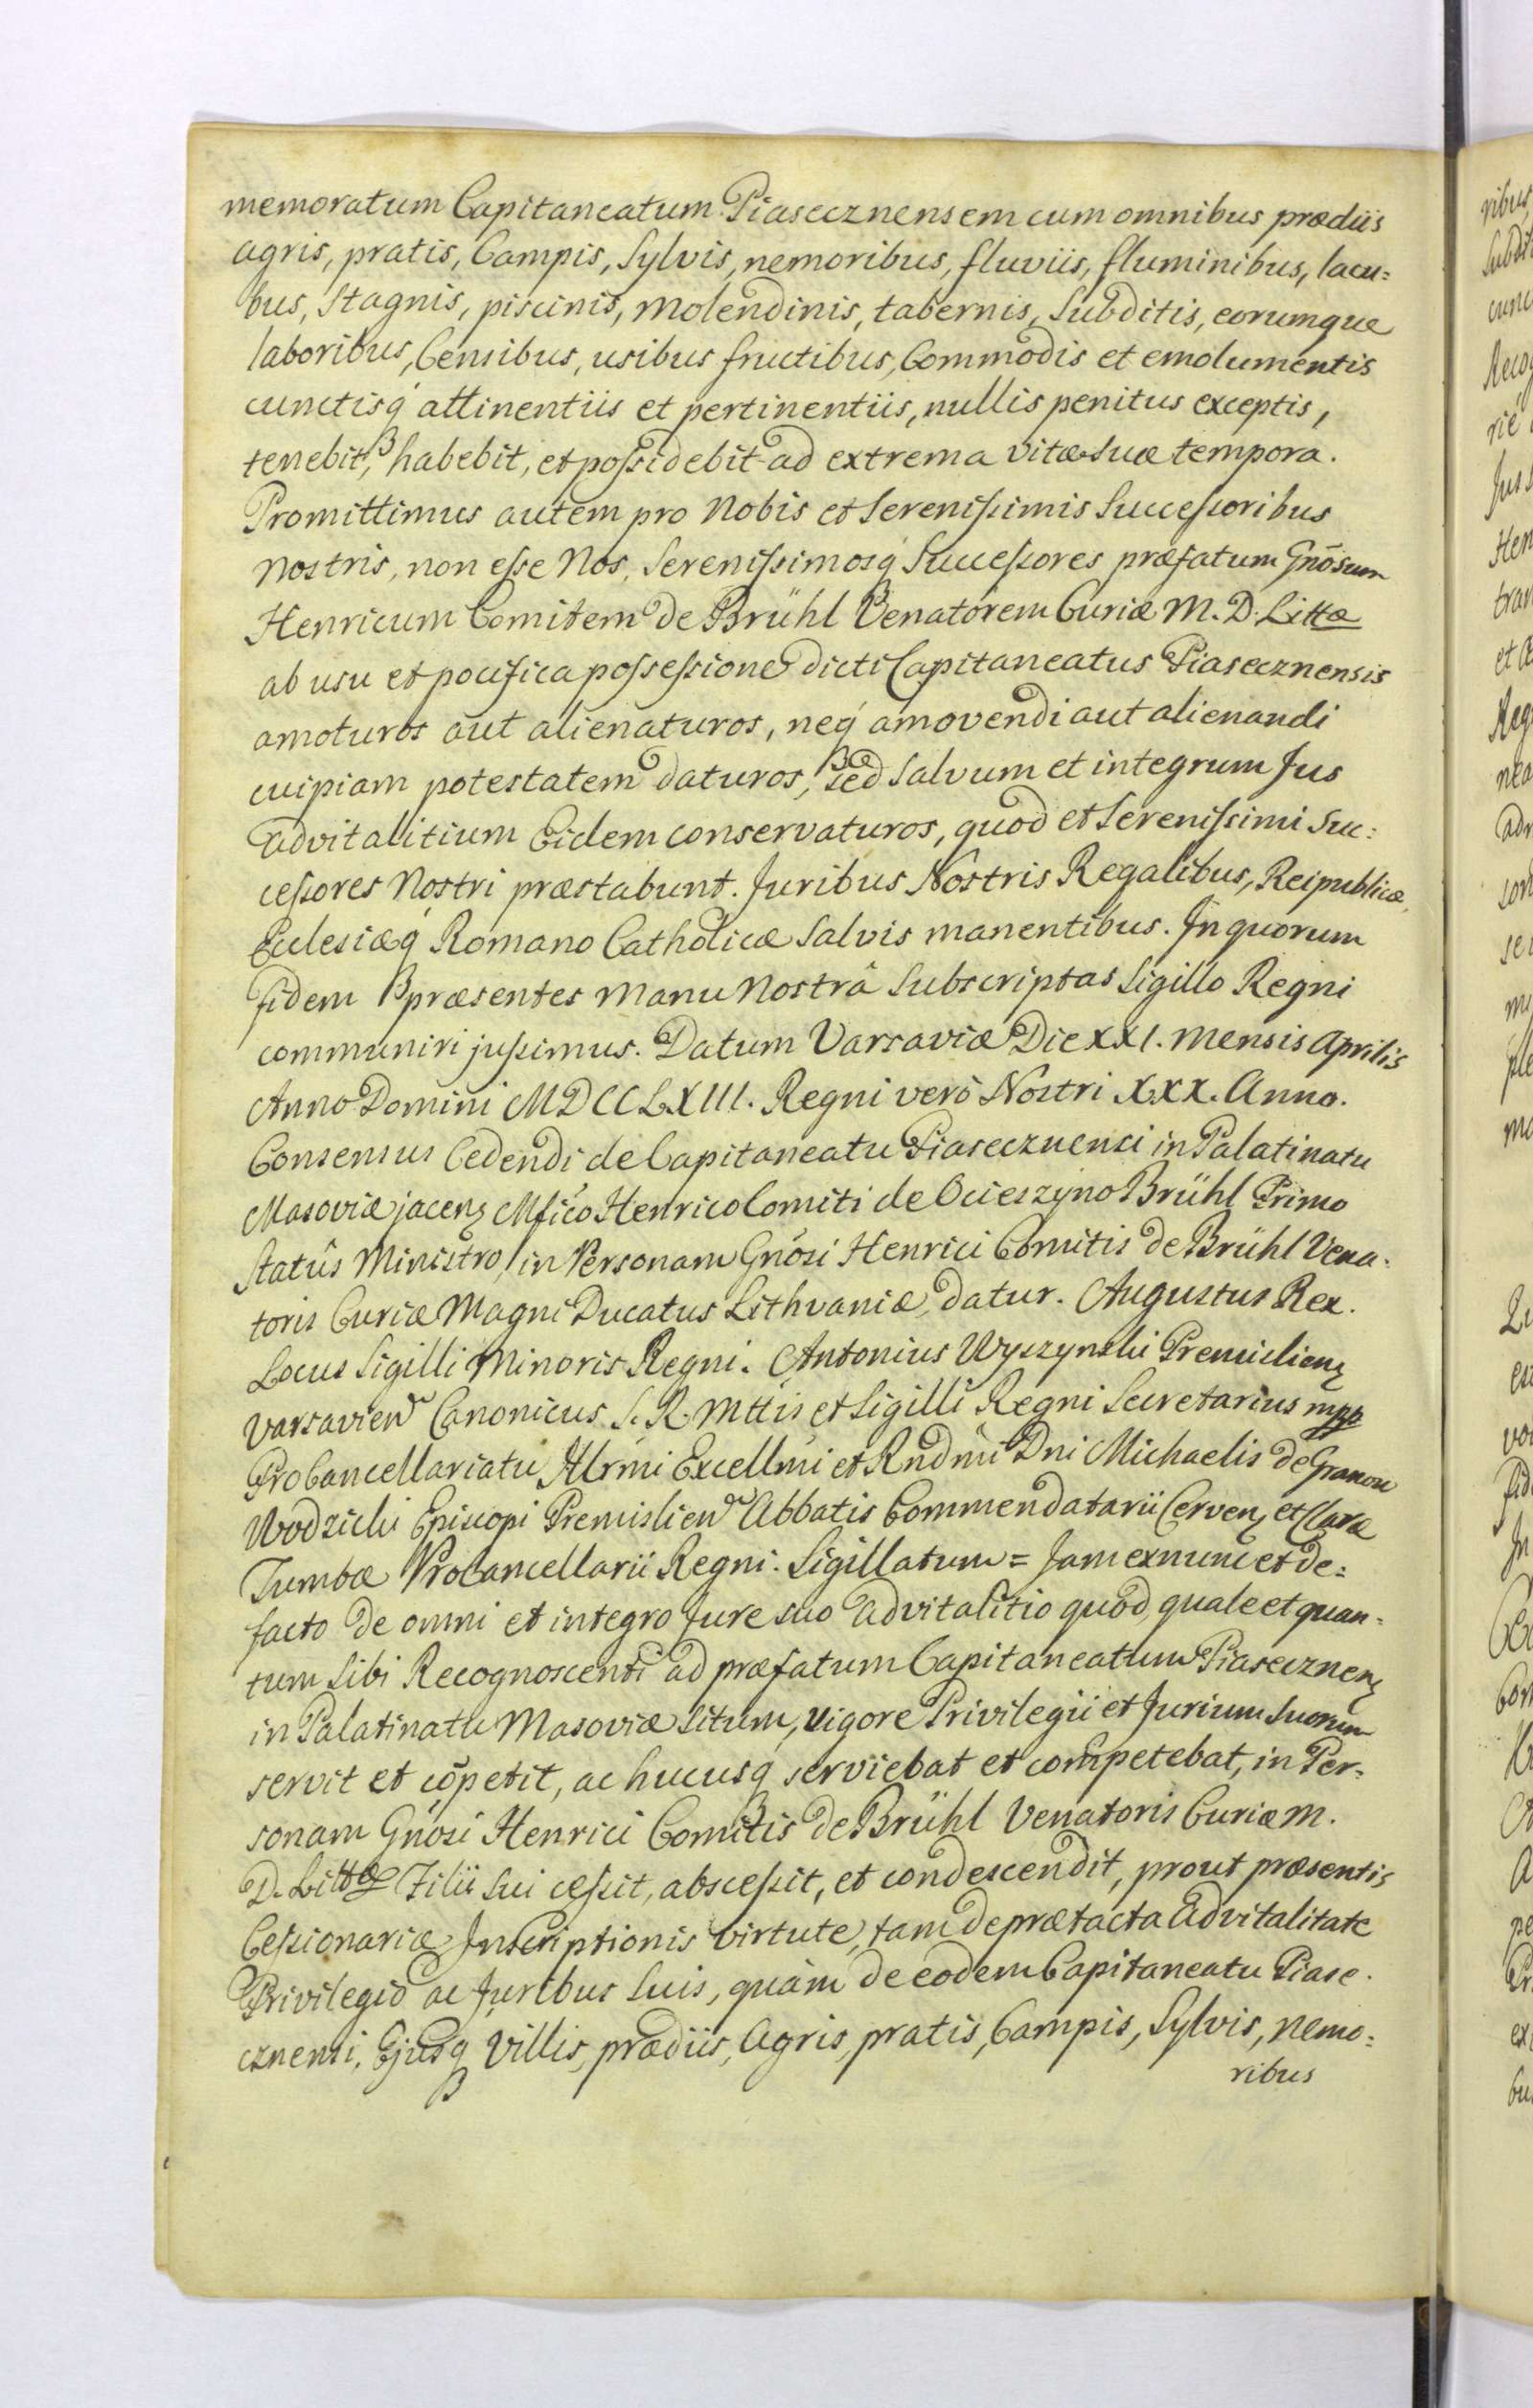 memoratum Capitaneatum Piasecznensem cum omnibus prædiis
agris, pratis, Campis, Sylvis, nemoribus, fluviis, fluminibus, lacu=
bus, Stagnis, piscinis, molendinis, tabernis, Subditis, eorumque
laboribus, Censibus, usibus fructibus, Commodis et emolumentis
cunctisq́ attinentiis et pertinentiis, nullis penitus exceptis,
tenebit, habebit, et poſsidebit ad extrema vitæ suæ tempora.
Promittimus autem pro Nobis et Sereniſsimis Succeſsoribus
nostris, non eſse Nos, Sereniſsimosq́ Succeſsores præfatum Gnōsum
Henricum Comitem de Brühl Venatorem Curiæ M. D. Littæ
ab usu et pacifica poſseſsione dicti Capitaneatus Piasecznensis
amoturos aut alienaturos, neq́ amovendi aut alienandi
cuipiam potestatem daturos, sed Salvum et integrum Jus
advitalitium Eidem conservaturos, quod et Sereniſsimi Suc=
ceſsores Nostri præstabunt. Juribus Nostris Regalibus, Reipublicæ,
Eclesiæq́ Romano Catholicæ Salvis manentibus. In quorum
fidem præsentes manu Nostrâ Subscriptas Sigillo Regni
communiri juſsimus. Datum Varsaviæ Die XXI. mensis Aprilis
Anno Domini MDCCLXIII. Regni verò Nostri XXX. Anno.
Consensus Cedendi de Capitaneatu Piasecznensi in Palatinatu
Masoviæ jacenȝ Mfico Henrico Comiti de Ocieszyno Brühl Primo
Statûs Ministro, in Personam Gnōsi Henrici Comitis de Brühl Vena=
toris Curiæ Magni Ducatus Lithvaniæ, datur. Augustus Rex.
Locus Sigilli Minoris Regni. Antonius Wyszynski Premislienȝ
Varsavien Canonicus S. R. Mttis et Sigilli Regni Secretarius mpp
ProCancellariatu Illrmi Excellmi et Rndmi Dni Michaelis de Granow
Wodzicki Episcopi Premislien Abbatis Commendatarii Cervenȝ et Claræ
Tumbæ ProCancellarii Regni. Sigillatum = Jam ex nunc et de=
facto de omni et integro Jure suo advitalitio quod, quale et quan=
tum Sibi Recognoscenti ad præfatum Capitaneatum Piasecznenȝ
in Palatinatu Masoviæ Situm, vigore Privilegii et Jurium Suorum
servit et cōpetit, ac hucusq́ serviebat et competebat, in Per=
sonam Gnōsi Henrici Comitis de Brühl Venatoris Curiæ M.
D. Littæ Filii Sui ceſsit, absceſsit, et condescendit, prout præsentis
Ceſsionariæ Inscriptionis virtute, tam de prætacta Advitalitate
Privilegio ac Juribus Suis, quàm de eodem Capitaneatu Piase=
cznensi, Ejusq́ Villis, prædiis, Agris, pratis, Campis, Sylvis, nemo=
ribus